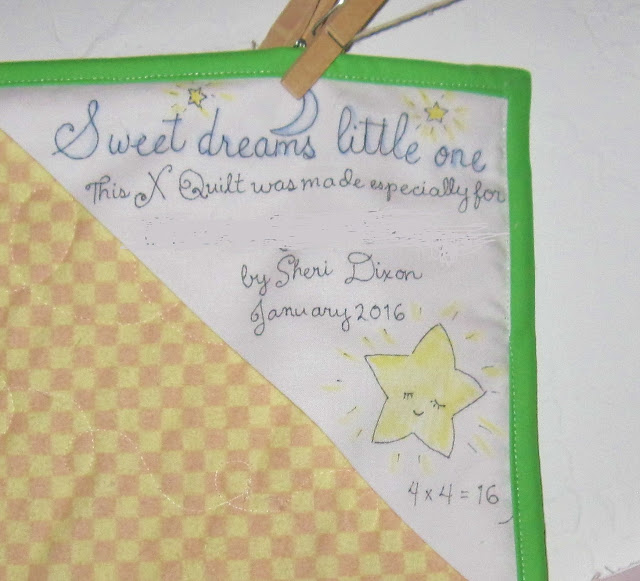 Sweet dreams little one
This X Quilt was made especially for
by Sheri Dixon
January 2016
4 x 4 = 16